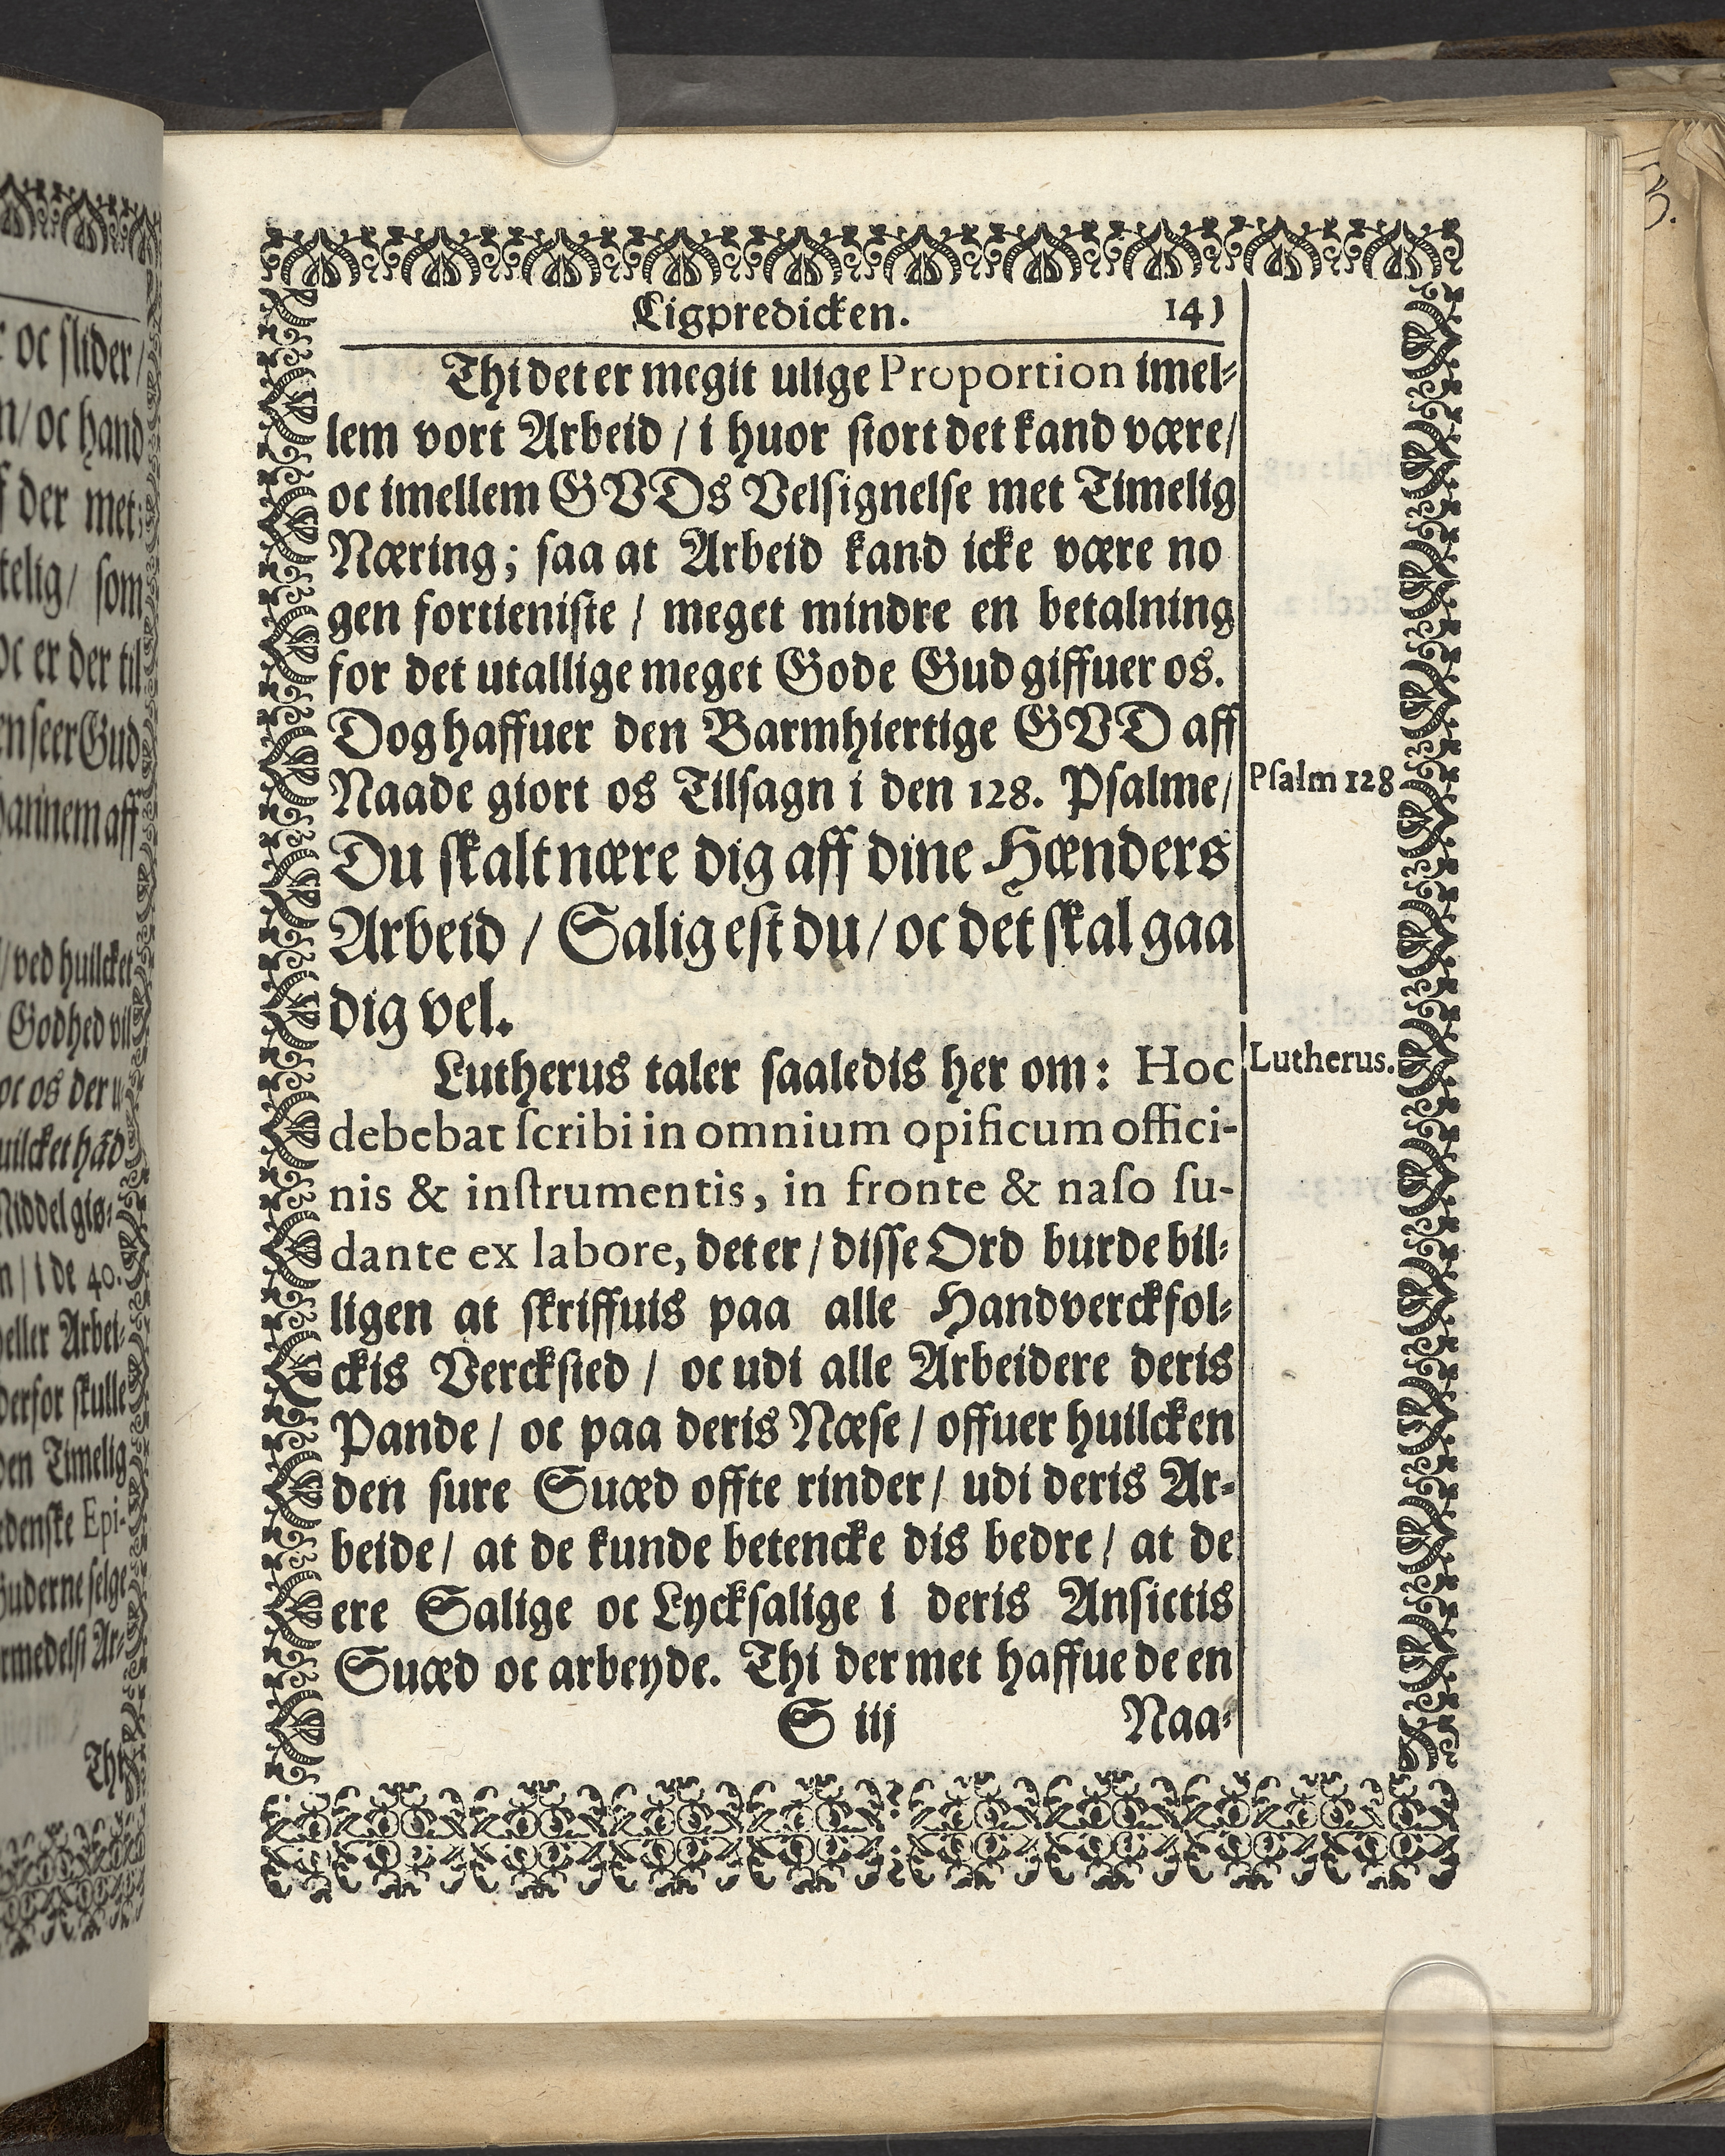 oc slider/
n/ oc hand
der met;
telig/ som
oc er der til
en seer Gud
hannem aff
/ ved huilcket
Godhed vil
oc os der u
huilcket hād
Middel giø⸗
n / i de 40.
eller Arbei⸗
derfor skulle
den Timelig
edenske Epi-
Guderne selge
rmedelst Ar⸗
Thi
Ligpredicken. 14)
Thi det er megit ulige Proportion imel⸗
lem vort Arbeid / i huor stort det kand være/
oc imellem GVDs Velsignelse met Timelig
Næring; saa at Arbeid kand icke være no
gen fortieniste / meget mindre en betalning
for det utallige meget Gode Gud giffuer os.
Dog haffuer den Barmhiertige GVD aff
Naade giort os Tilsagn i den 128. Psalme/
Psalm 128
Du skalt nære dig aff dine Hænders
Arbeid / Salig est du / oc det skal gaa
dig vel.
Lutherus taler saaledis her om: Hoc
Lutherus.
debebat scribi in omnium opificum offici-
nis & instrumentis, in fronte & naso su-
dante ex labore, det er / disse Ord burde bil⸗
ligen at skriffuis paa alle Handverckfol⸗
ckis Vercksted / oc udi alle Arbeidere deris
Pande / oc paa deris Næse / offuer huilcken
den sure Suæd offte rinder / udi deris Ar-
beide / at de kunde betencke dis bedre / at de
ere Salige oc Lycksalige i deris Ansictis
Suæd oc arbeyde. Thi der met haffue de en
S iij Naa⸗